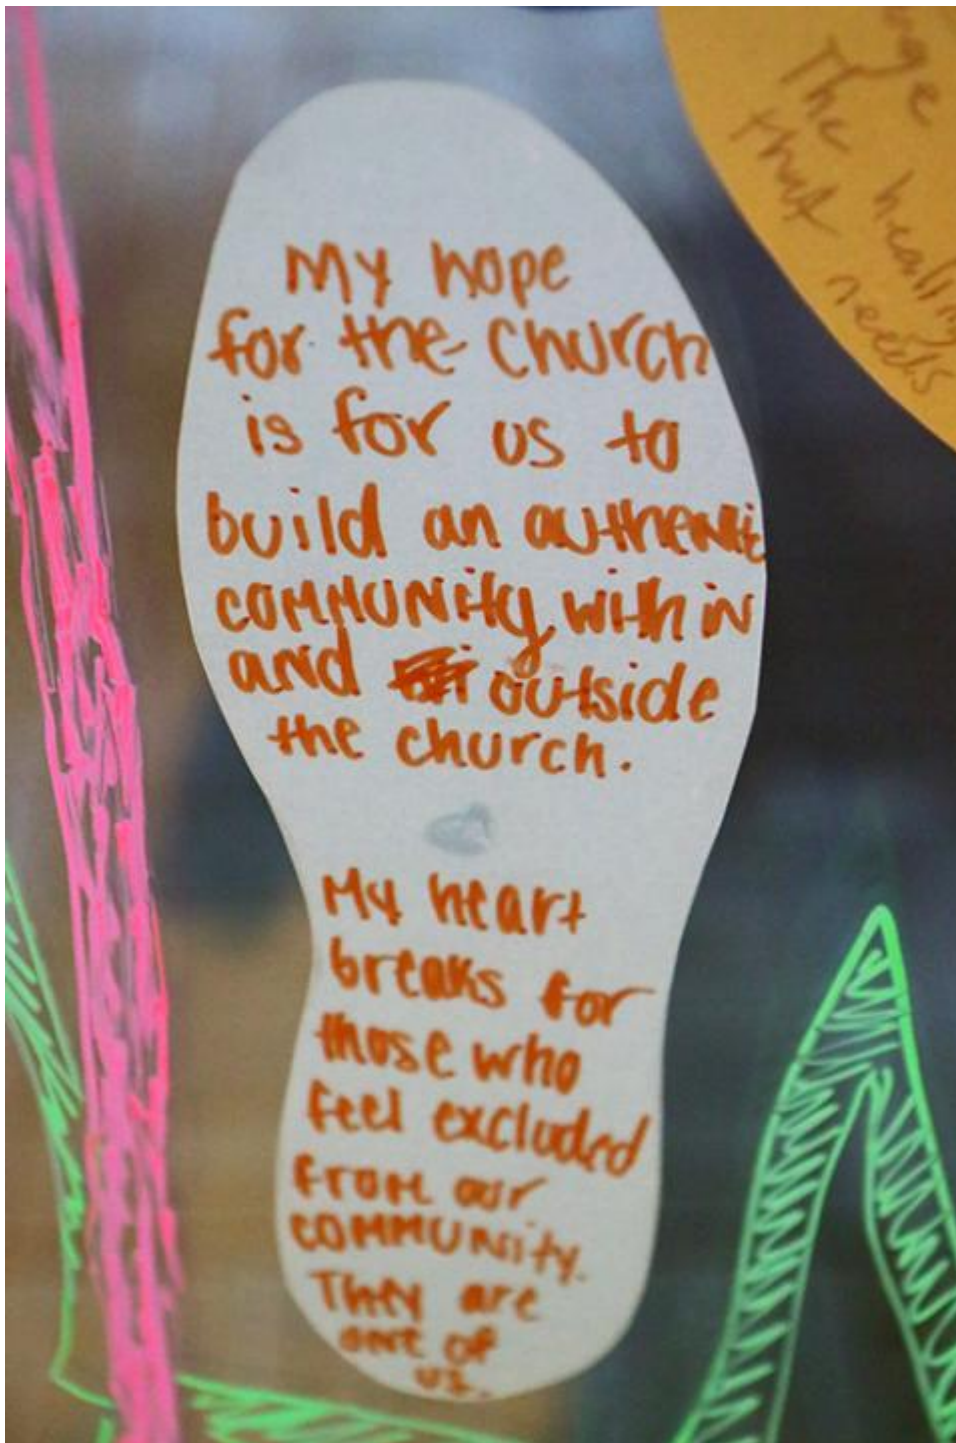 My hope
for the church
is for us to
build an authentic
community within
and outside
the church.
My heart
breaks for
those who
feel excluded
from our
community.
They are
one of
us.
nge
The healing
that needs